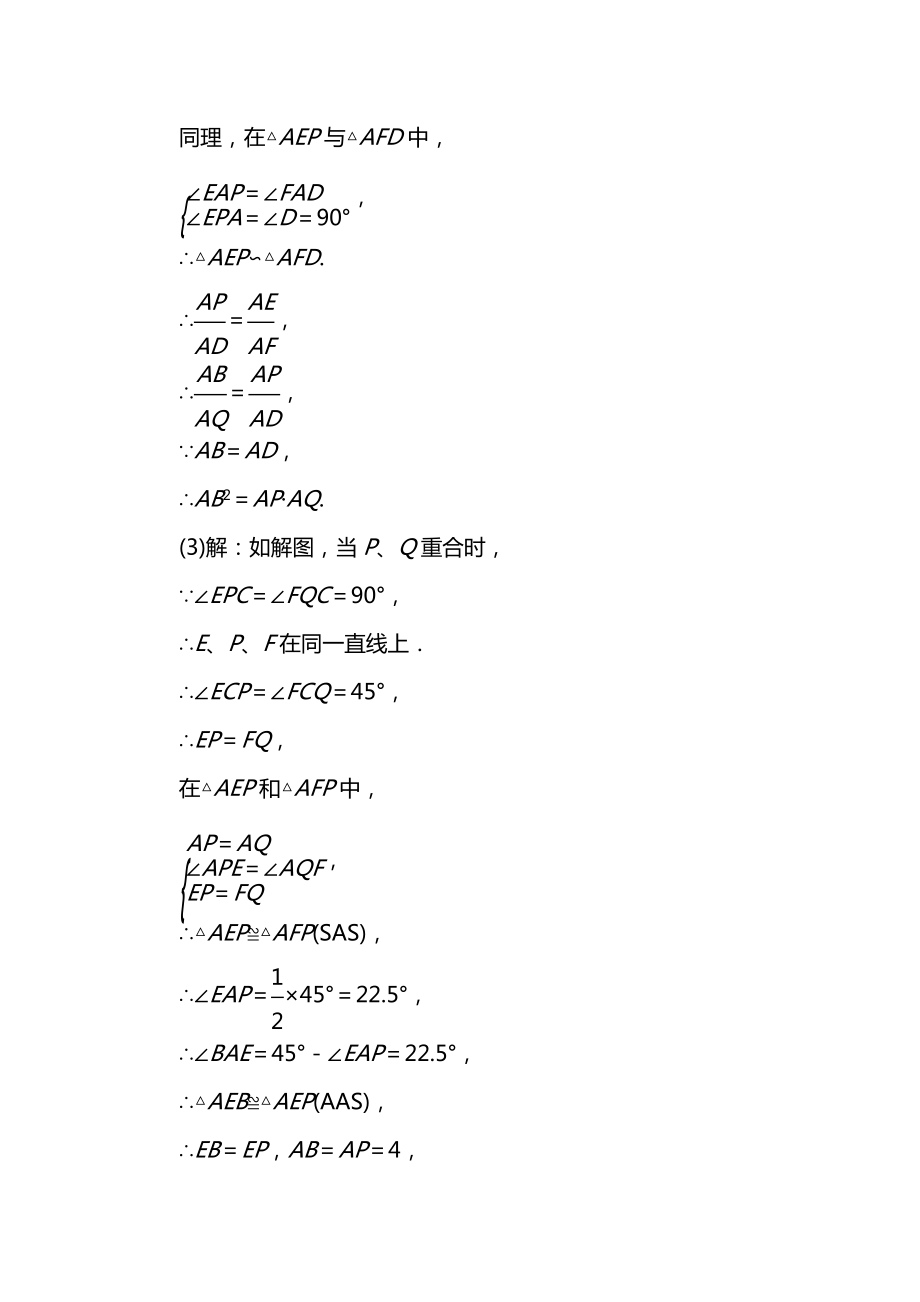 同理，在△AEP与△AFD中，
{∠EAP＝∠FAD
∠EPA＝∠D＝90°，
∴△AEP∽△AFD.
∴AP/AD＝AE/AF，
∴AB/AQ＝AP/AD，
∵AB＝AD，
∴AB²＝AP·AQ.
(3)解：如解图，当P、Q重合时，
∵∠EPC＝∠FQC＝90°，
∴E、P、F在同一直线上．
∴∠ECP＝∠FCQ＝45°，
∴EP＝FQ，
在△AEP和△AFP中，
{AP＝AQ
∠APE＝∠AQF，
EP＝FQ
∴△AEP≌△AFP(SAS)，
∴∠EAP＝1/2×45°＝22.5°，
∴∠BAE＝45°－∠EAP＝22.5°，
∴△AEB≌△AEP(AAS)，
∴EB＝EP，AB＝AP＝4，